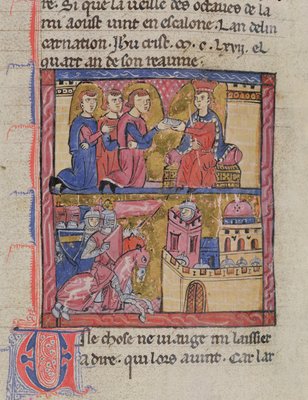 re. Si que la vieille des octaues de la
mi aoust vint en escalone. Lan delin
carnation. Ihu crist. m. c. lxvij. el
quart an de son reaume.
Ule chose ne mi laissier
a dire. qui lors auint. Car lar